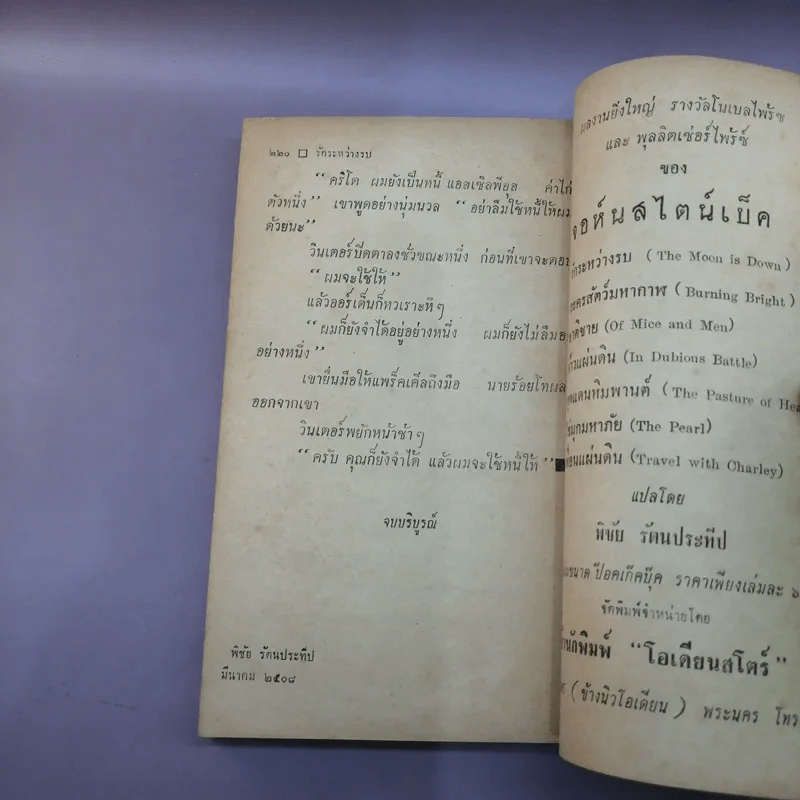 ๒๒๐ □ รักระหว่างรบ
“ คริโต ผมยังเป็นหนี้ แอสเซิลพีอุส ค่าไก่
ตัวหนึ่ง” เขาพูดอย่างนุ่มนวล “ อย่าลืมใช้หนี้ให้ผม
ด้วยนะ”
วินเตอร์ปิดตาลงชั่วขณะหนึ่ง ก่อนที่เขาจะตอบ
“ ผมจะใช้ให้”
แล้วออร์เด็นก็หัวเราะหึๆ
“ผมก็ยังจำได้อยู่อย่างหนึ่ง ผมก็ยังไม่ลืม
อย่างหนึ่ง”
เขายื่นมือให้แพร็คเคิลถึงมือ นายร้อยโทผละ
ออกจากเขา
วินเตอร์พยักหน้าช้าๆ
“ ครับ คุณก็ยังจำได้ แล้วผมจะใช้หนี้ให้ ”
จบบริบูรณ์
พิชัย รัตนประทีป
มีนาคม ๒๕๐๘
ผลงานยิ่งใหญ่ รางวัลโนเบลไพร้ซ
และ พุลลิตเซ่อร์ไพร้ซ์
ของ
จอห์นสไตน์เบ็ค
รักระหว่างรบ ( The Moon is Down )
ละครสัตว์มหากาฬ ( Burning Bright )
ชาติชาย (Of Mice and Men)
แผ่นดิน (In Dubious Battle)
แดนหิมพานต์ ( The Pasture of
มุกมหาภัย (The Pearl)
แผ่นดิน (Travel with Charley)
แปลโดย
พิชัย รัตนประทีป
ขนาด ป๊อคเก๊ตบุ๊ค ราคาเพียงเล่มละ ๖
จัดพิมพ์จำหน่ายโดย
สำนักพิมพ์ “โอเดียนสโตร์”
( ข้างนิวโอเดียน ) พระนคร โทร